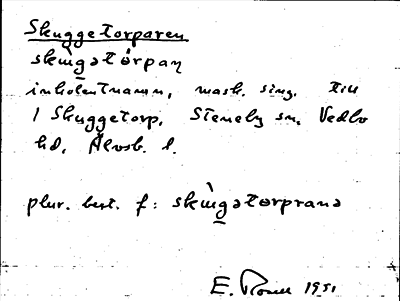 Skuggetorparen
skùŋgatórpaɲ
inbolentnamn, mask. sing. till
1 Skuggetorp, Steneby sn, Vedbo
hd, Älvsb. l.
plur. best. f: skùŋgatorprana
E. 1951